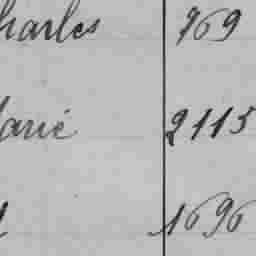 harles 769
arie 2115
1696